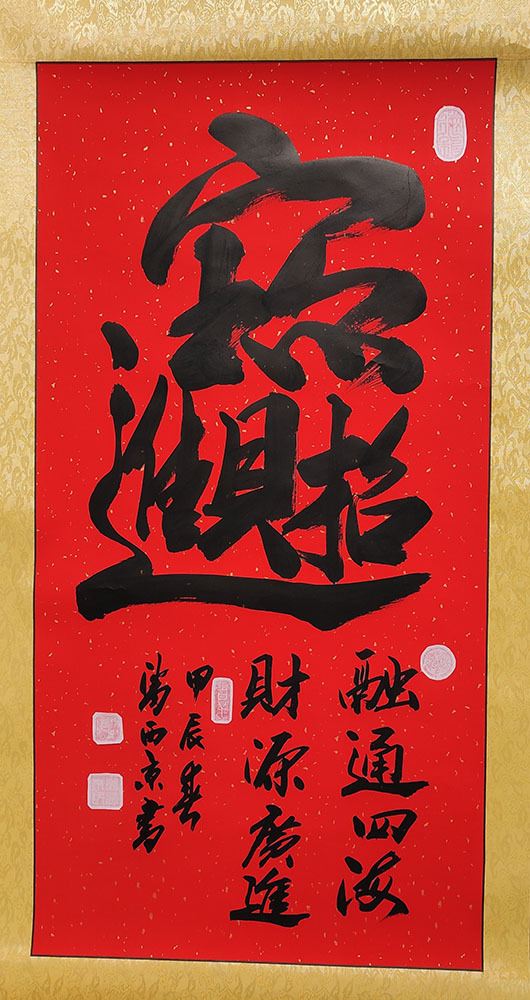 招財進寶
融通四海
財源廣進
甲辰春
西京書